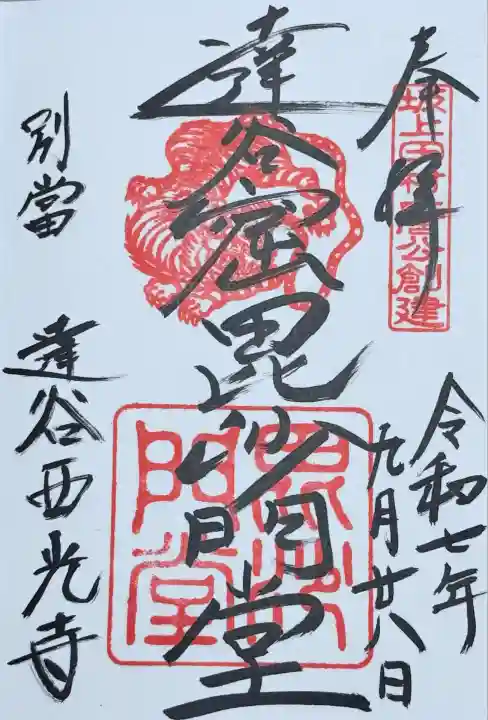 奉拝
坂上田村麿公創建
令和七年
九月廿八日
達谷窟毘沙門堂
毘沙門堂
別當
達谷西光寺